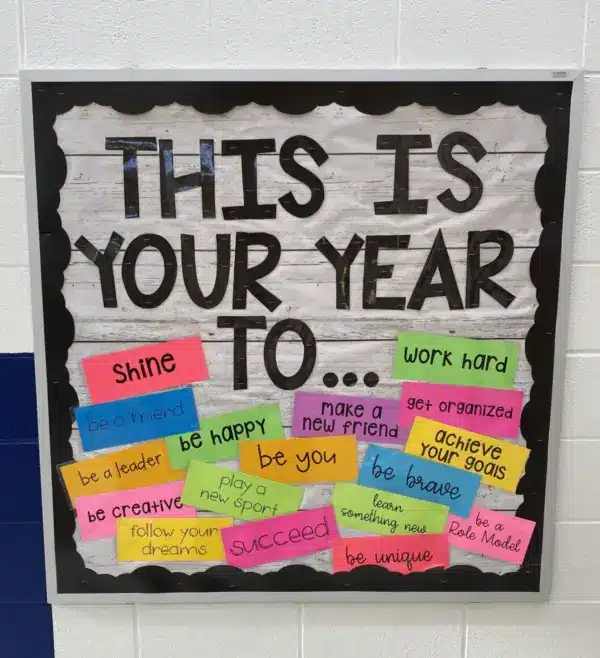 THIS IS
YOUR YEAR
TO...
shine
work hard
be a friend
make a
new friend
get organized
be happy
achieve
your goals
be a leader
be you
be brave
play a
new sport
be creative
learn
something new
follow your
dreams
succeed
be a
Role Model
be unique